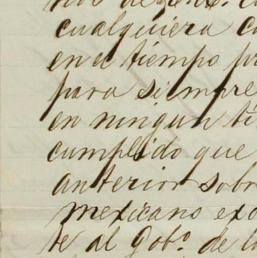 cualquiera
en el tiempo
para siempre
en ningun
cumplido que
anterior sobr
mexicano exo
te al Gobº. de l